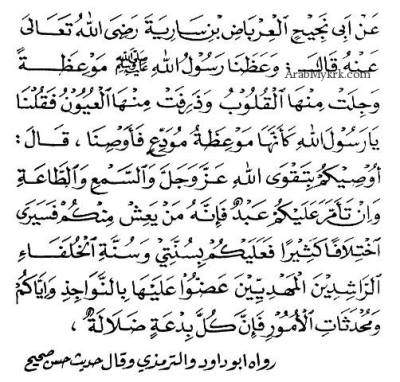 عَنْ أَبِي نَجِيحٍ الْعِرْبَاضِ بْنِ سَارِيَةَ رَضِيَ اللهُ تَعَالَى
عَنْهُ قَالَ: وَعَظَنَا رَسُولُ اللهِ ﷺ مَوْعِظَةً
ArabMykrk.com
وَجِلَتْ مِنْهَا الْقُلُوْبُ وَذَرِفَتْ مِنْهَا الْعُيُوْنُ فَقُلْنَا
يَا رَسُوْلَ اللهِ كَأَنَّهَا مَوْعِظَةُ مُوَدِّعٍ فَأَوْصِنَا ، قَالَ :
أُوْصِيْكُمْ بِتَقْوَى اللهِ عَزَّ وَجَلَّ وَالسَّمْعِ وَالطَّاعَةِ
وَإِنْ تَأَمَّرَ عَلَيْكُمْ عَبْدٌ فَإِنَّهُ مَنْ يَعِشْ مِنْكُمْ فَسَيَرَى
اخْتِلَافًا كَثِيْرًا فَعَلَيْكُمْ بِسُنَّتِيْ وَسُنَّةِ الْخُلَفَاءِ
الرَّاشِدِيْنَ الْمَهْدِيِّيْنَ عَضُّوْا عَلَيْهَا بِالنَّوَاجِذِ وَإِيَّاكُمْ
وَمُحْدَثَاتِ الْأُمُوْرِ فَإِنَّ كُلَّ بِدْعَةٍ ضَلَالَةٌ ،
رواه ابو داود والترمذي وقال حديث حسن صحيح